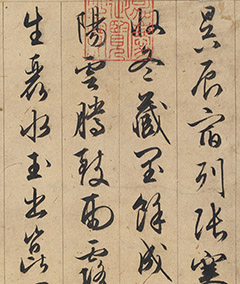 昃辰宿列張寒
收冬藏閏餘成
陽雲騰致雨露
生麗水玉出崑